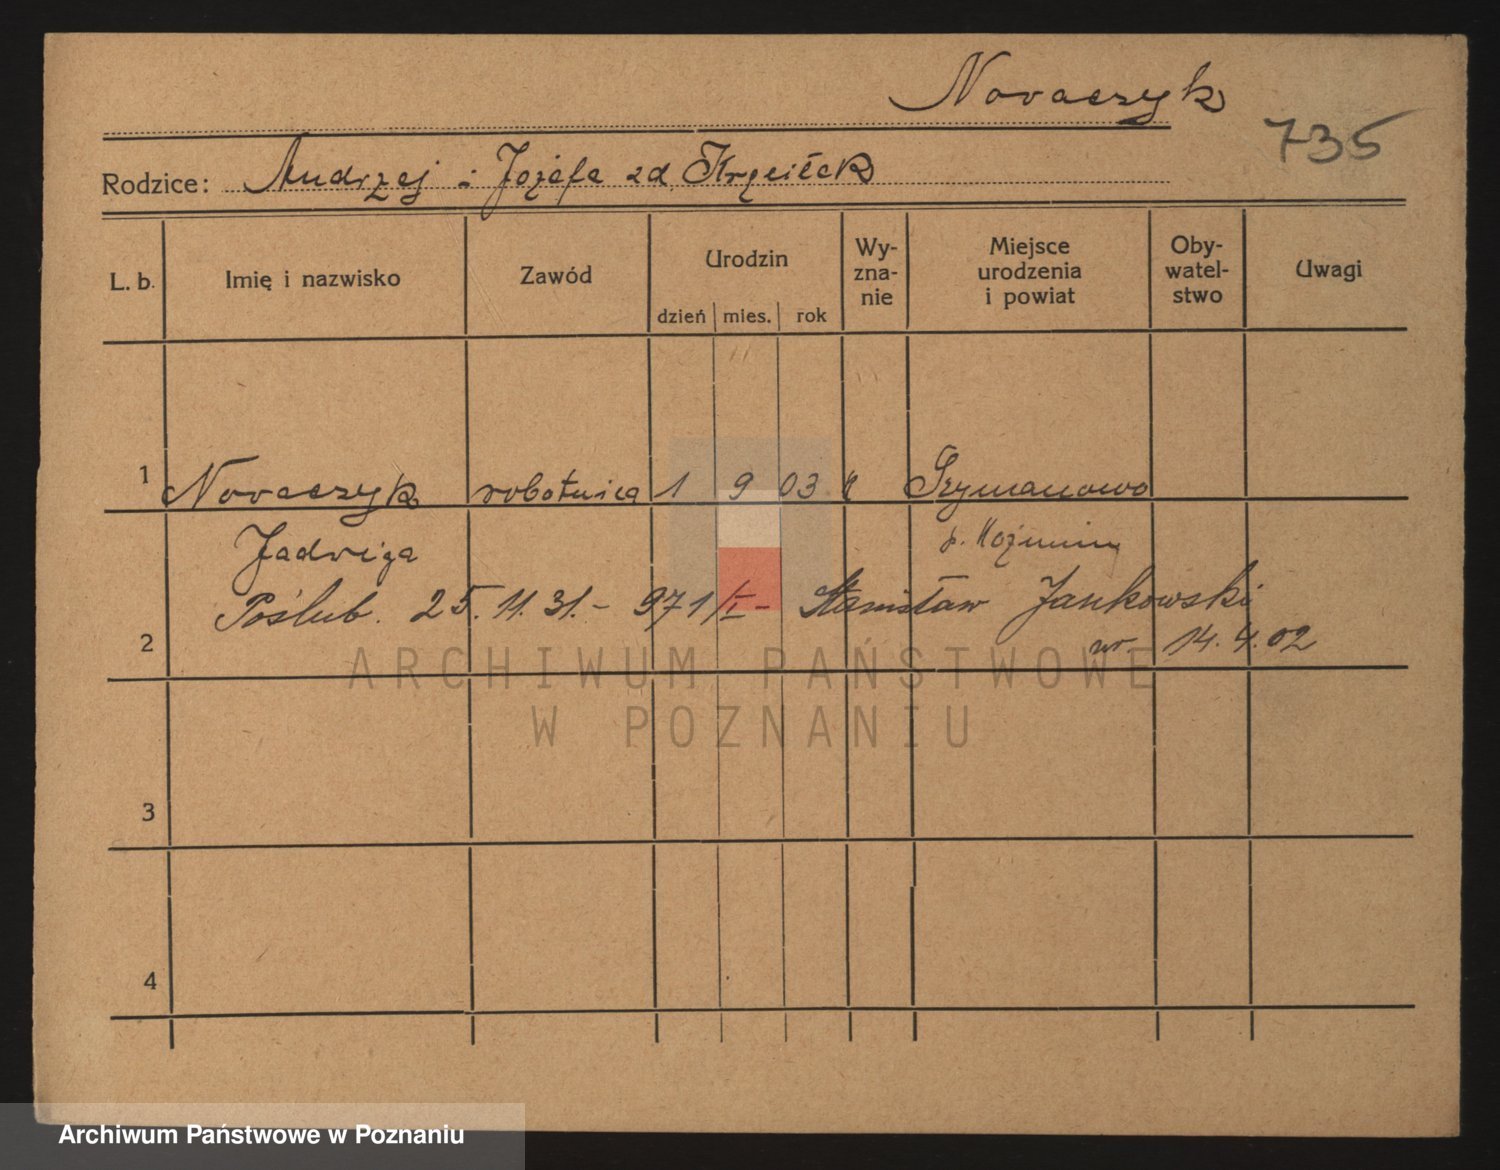 Novaczyk
735
Rodzice: Andrzej i Józefa zd
L. b. Imię i nazwisko Zawód Urodzin dzień mies. rok Wy-zna-nie Miejsce urodzenia i powiat Oby-watel-stwo Uwagi
1 Novaczyk robotnica 1 9 03 Szymanowo
Jadwiga p. Koźmin
Poślub. 25.11.31.- 971/I- Stanisław Jankowski
2 ur. 14.4.02
ARCHIWUM PAŃSTWOWE
W POZNANIU
3
4
Archiwum Państwowe w Poznaniu